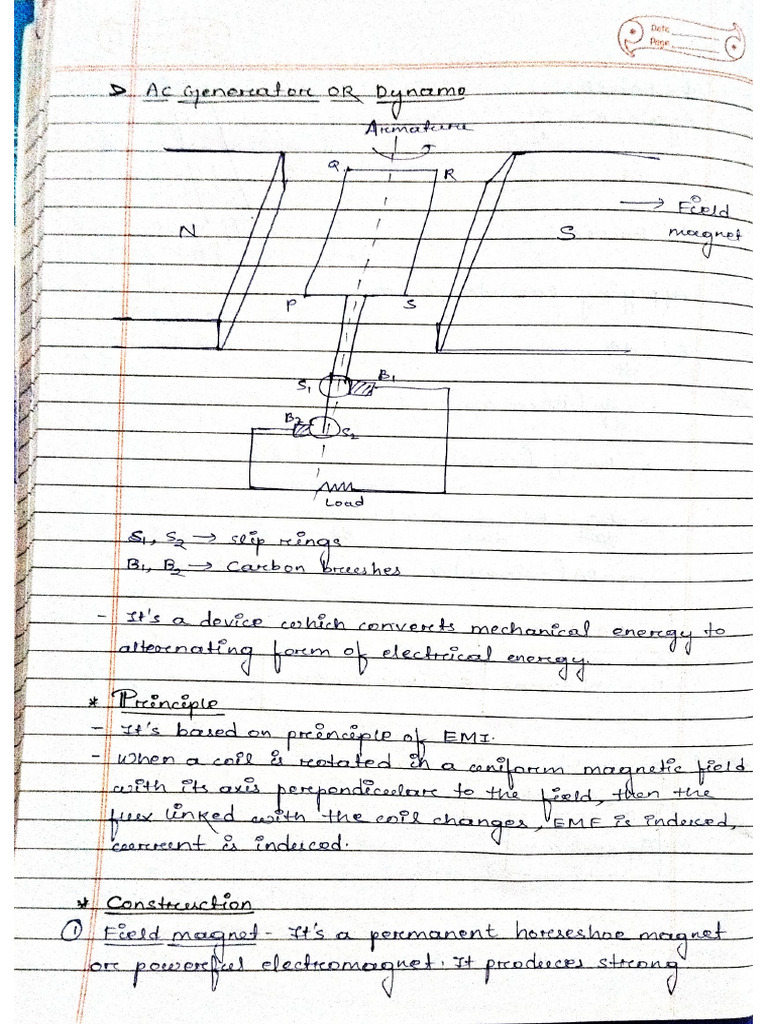 Date
Page
AC Generator OR Dynamo
Armature
Q
R
N
S
→ Field
magnet
P
S
S1
B1
B2
S2
Load
S1, S2 → slip rings
B1, B2 → Carbon brushes
- It's a device which converts mechanical energy to
alternating form of electrical energy.
* Principle
- It's based on principle of EMI.
- When a coil is rotated in a uniform magnetic field
with its axis perpendicular to the field, then the
flux linked with the coil changes, EMF is induced,
current is induced.
* Construction
① Field magnet - It's a permanent horseshoe magnet
or powerful electromagnet. It produces strong